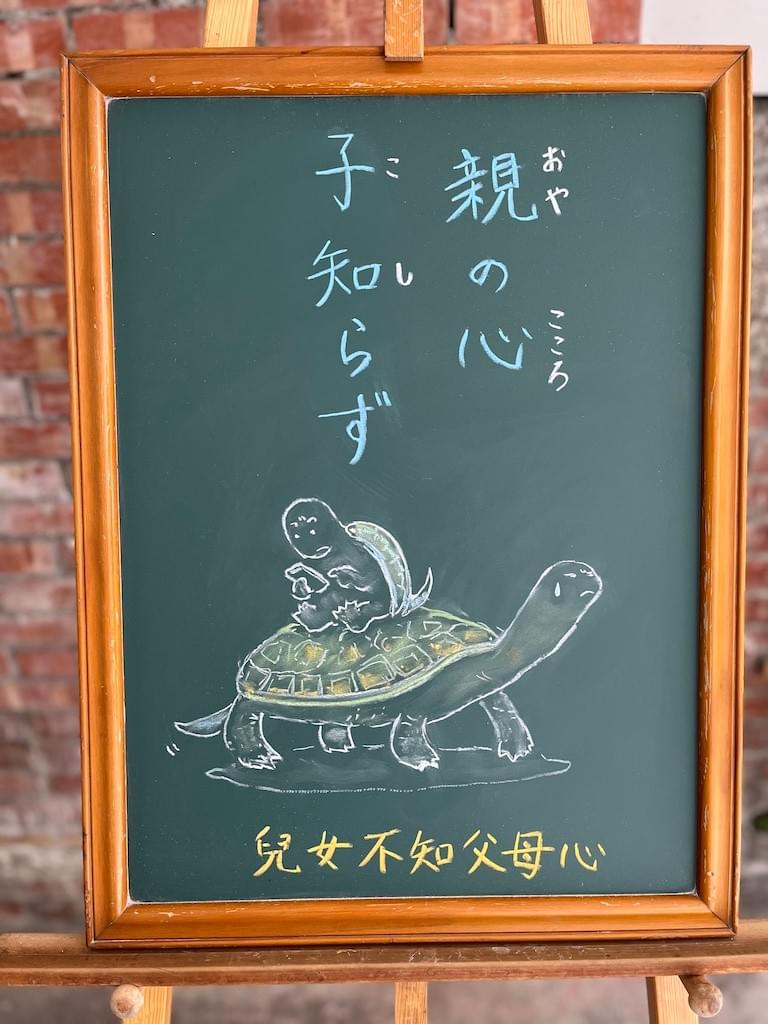 親の心
おや こころ
子知らず
こ し
兒女不知父母心